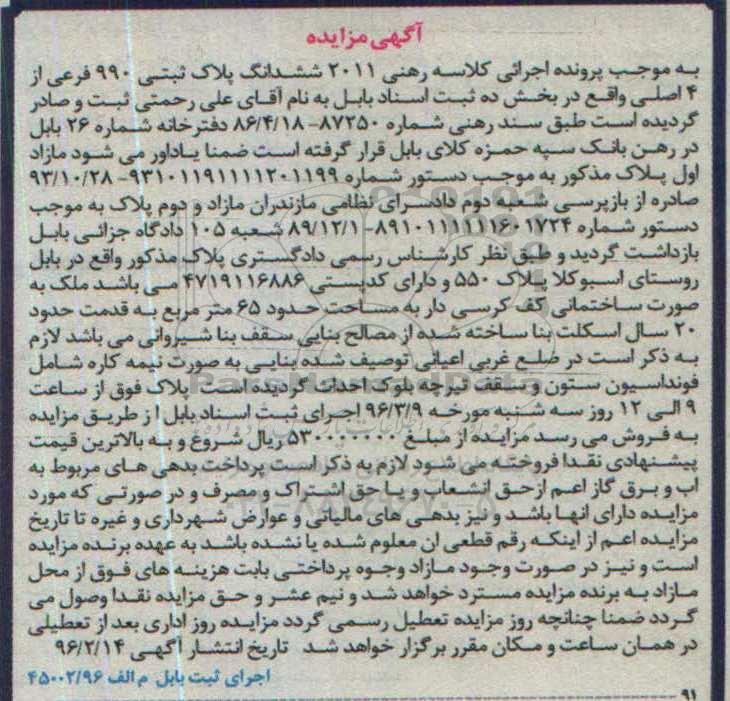 آگهی مزایده
به موجب پرونده اجرائی کلاسه رهنی ۲۰۱۱ ششدانگ پلاک ثبتی ۹۹۰ فرعی از
۴ اصلی واقع در بخش ده ثبت اسناد بابل به نام آقای علی رحمتی ثبت و صادر
گردیده است طبق سند رهنی شماره ۸۷۲۵۰- ۸۶/۴/۱۸ دفترخانه شماره ۲۶ بابل
در رهن بانک سپه حمزه کلای بابل قرار گرفته است ضمنا یاداور می شود مازاد
اول پلاک مذکور به موجب دستور شماره ۹۳۱۰۱۱۹۱۱۱۱۱۲۰۱۱۹۹- ۹۳/۱۰/۲۸
صادره از بازپرسی شعبه دوم دادسرای نظامی مازندران مازاد و دوم پلاک به موجب
دستور شماره ۸۹۱۰۱۱۱۱۱۱۶۰۱۷۲۴- ۸۹/۱۲/۱ شعبه ۱۰۵ دادگاه جزائی بابل
بازداشت گردید و طبق نظر کارشناس رسمی دادگستری پلاک مذکور واقع در بابل
روستای اسبوکلا پلاک ۵۵۰ و دارای کدپستی ۴۷۱۹۱۱۶۸۸۶ می باشد ملک به
صورت ساختمانی کف کرسی دار به مساحت حدود ۶۵ متر مربع به قدمت حدود
۲۰ سال اسکلت بنا ساخته شده از مصالح بنایی سقف بنا شیروانی می باشد لازم
به ذکر است در ضلع غربی اعیانی توصیف شده بنایی به صورت نیمه کاره شامل
فونداسیون ستون و سقف تیرچه بلوک احداث گردیده است پلاک فوق از ساعت
۹ الی ۱۲ روز سه شنبه مورخه ۹۶/۳/۹ اجرای ثبت اسناد بابل ا ز طریق مزایده
به فروش می رسد مزایده از مبلغ ۵۳۰۰۰۰۰۰۰ ریال شروع و به بالاترین قیمت
پیشنهادی نقدا فروخته می شود لازم به ذکر است پرداخت بدهی های مربوط به
اب و برق گاز اعم ازحق انشعاب و یا حق اشتراک و مصرف و در صورتی که مورد
مزایده دارای انها باشد و نیز بدهی های مالیاتی و عوارض شهرداری و غیره تا تاریخ
مزایده اعم از اینکه رقم قطعی ان معلوم شده یا نشده باشد به عهده برنده مزایده
است و نیز در صورت وجود مازاد وجوه پرداختی بابت هزینه های فوق از محل
مازاد به برنده مزایده مسترد خواهد شد و نیم عشر و حق مزایده نقدا وصول می
گردد ضمنا چنانچه روز مزایده تعطیل رسمی گردد مزایده روز اداری بعد از تعطیلی
در همان ساعت و مکان مقرر برگزار خواهد شد تاریخ انتشار اگهی ۹۶/۲/۱۴
اجرای ثبت بابل م الف ۴۵۰۰۲/۹۶
۹۱